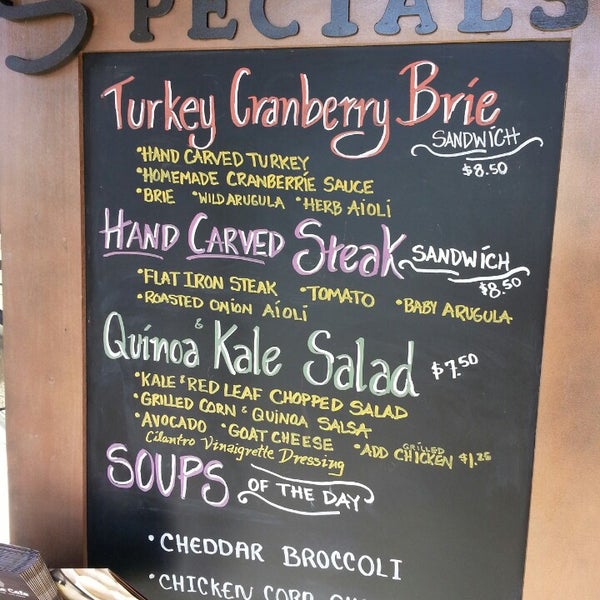 SPECIALS
Turkey Cranberry Brie
SANDWICH
$8.50
• HAND CARVED TURKEY
• HOMEMADE CRANBERRIE SAUCE
• BRIE • WILD ARUGULA • HERB AIOLI
HAND CARVED Steak SANDWICH
$8.50
• FLAT IRON STEAK • TOMATO • BABY ARUGULA
• ROASTED ONION AIOLI
Quinoa & Kale Salad $7.50
• KALE & RED LEAF CHOPPED SALAD
• GRILLED CORN & QUINOA SALSA
• AVOCADO • GOAT CHEESE • ADD GRILLED CHICKEN $1.25
Cilantro Vinaigrette Dressing
SOUPS OF THE DAY
• CHEDDAR BROCCOLI
• CHICKEN CORN